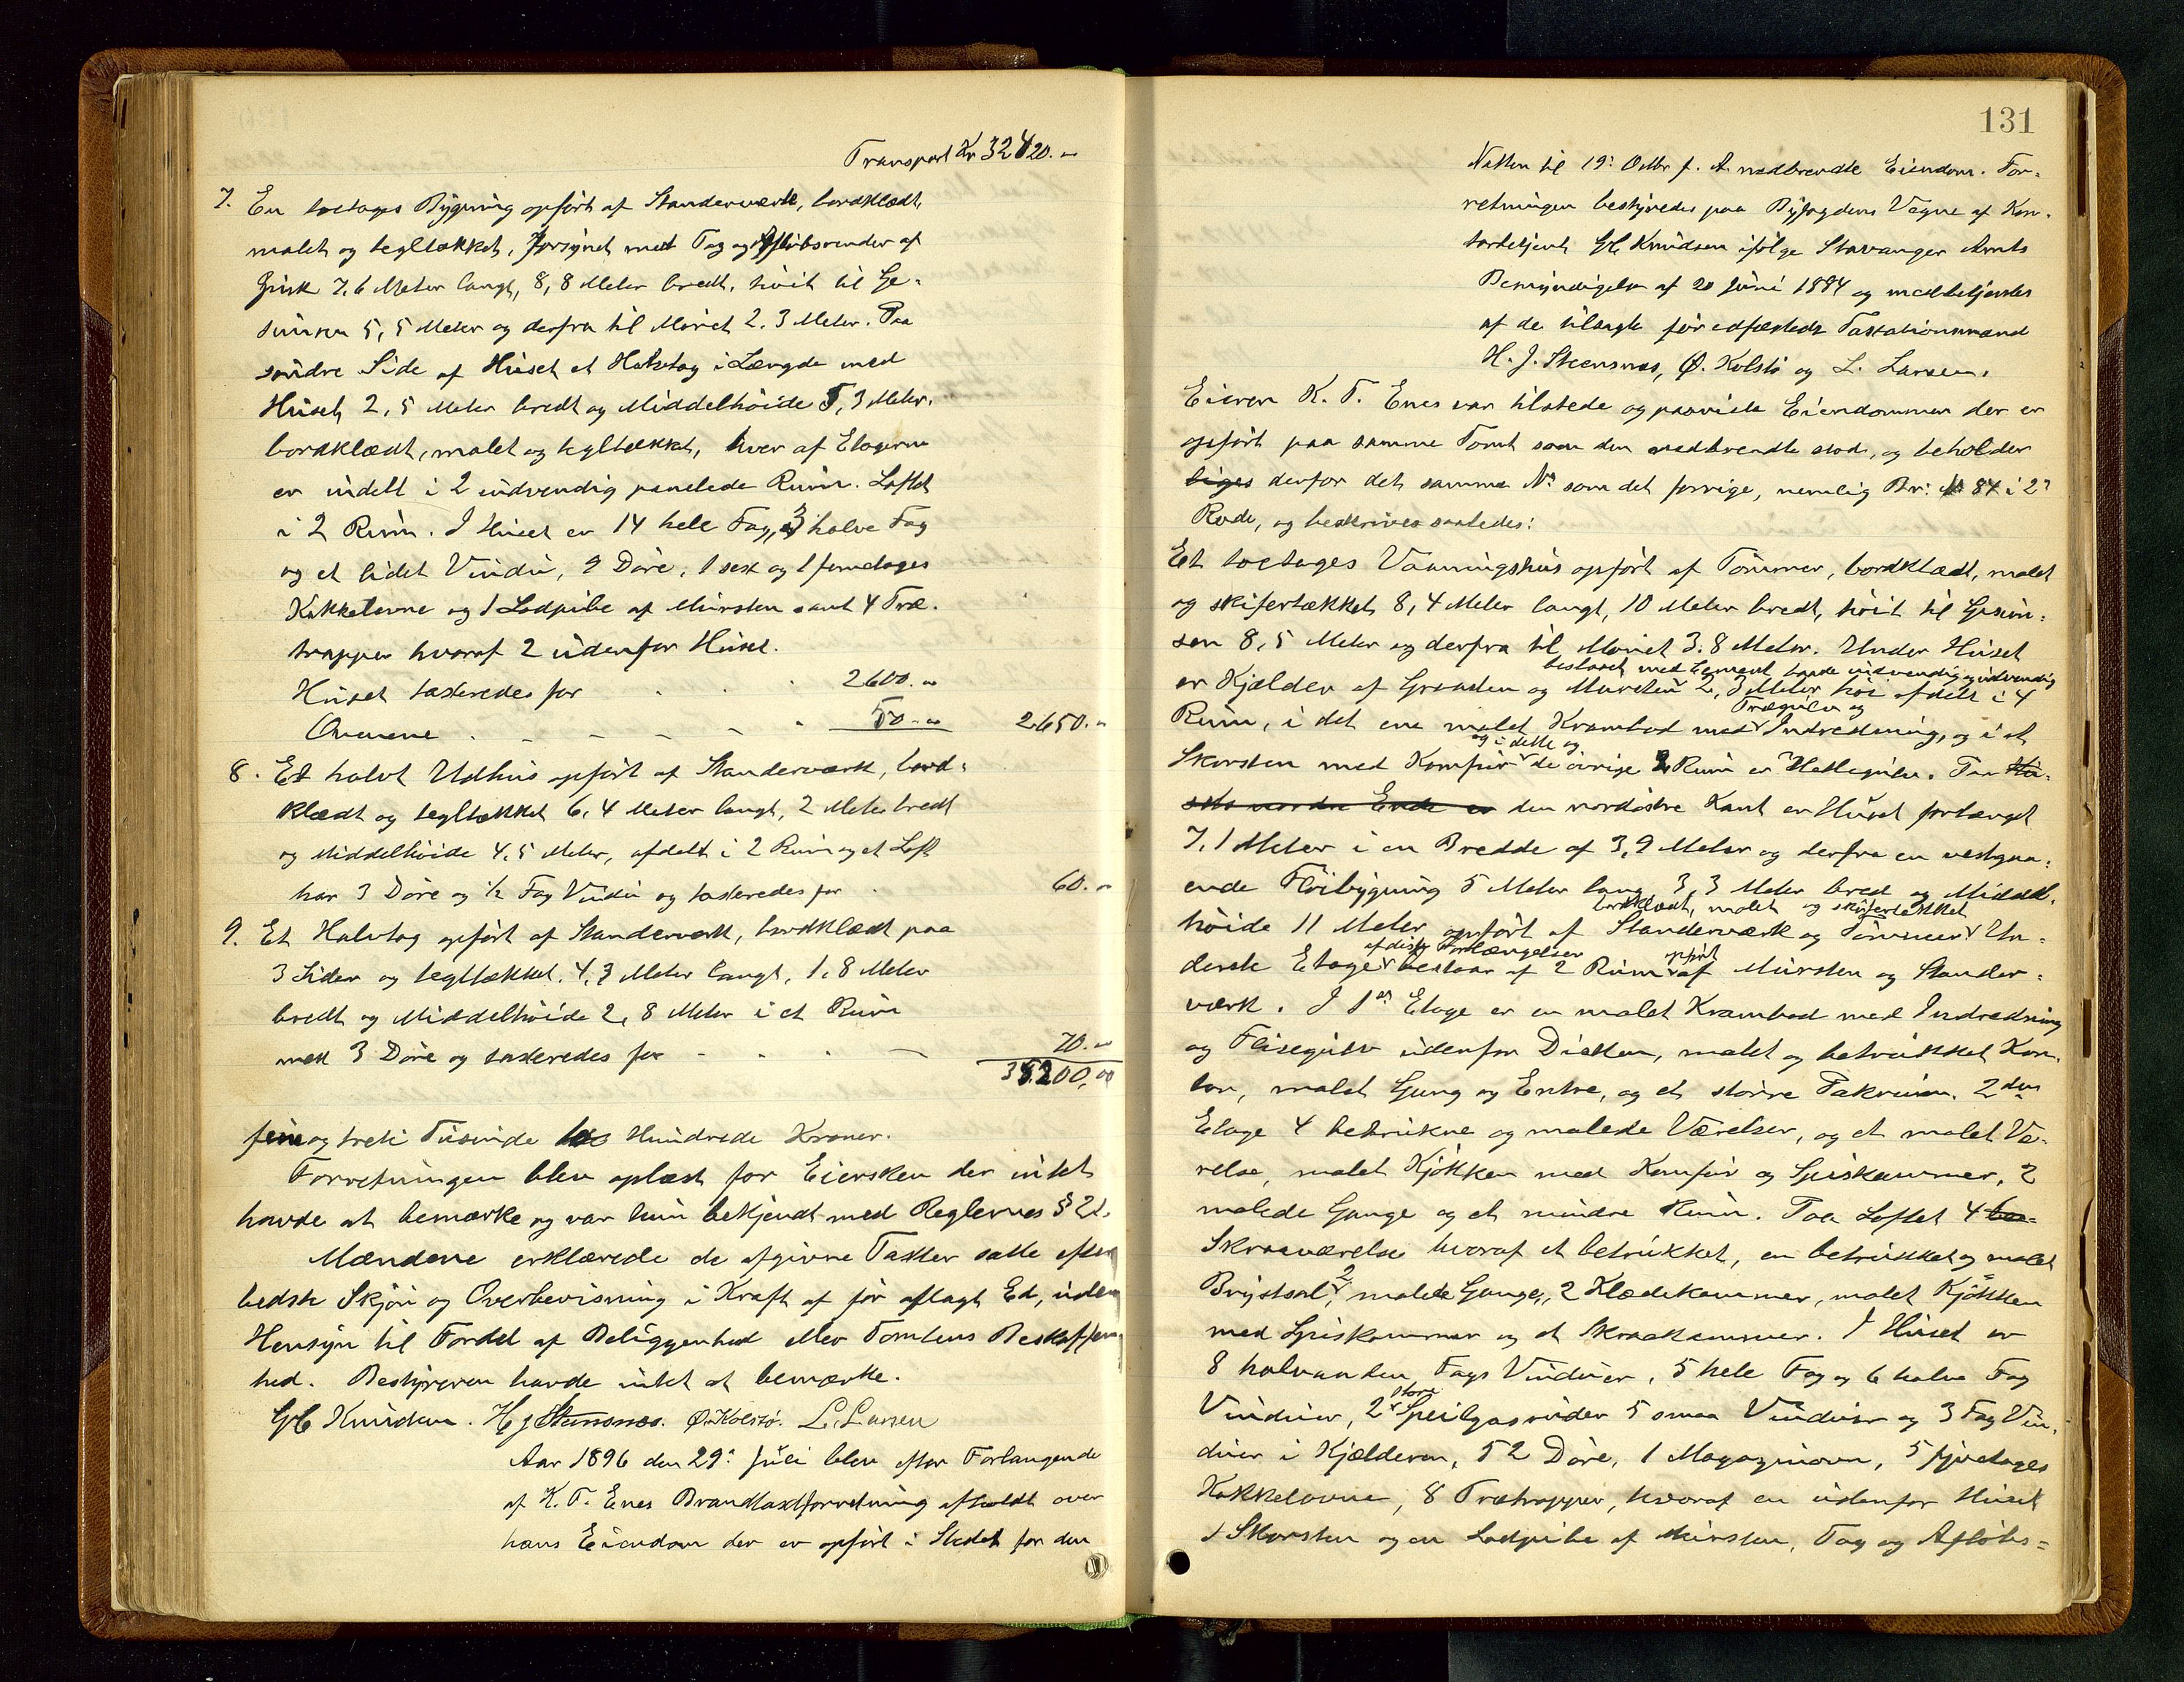 Transport Kr 32420.„
7. En toetages Bygning opført af Standerværk, bordklædt,
malet og tegltækket, forsynet med Tag og Afløbsrender af
Zink 7,6 Meter langt, 8,8 Meter bredt, høit til Ge-
simsen 5,5 Meter og derfra til Mønet 2.3 Meter. Paa
søndre Side af Huset et Halvtag i Længde med
Huset, 2,5 Meter bredt og Middelhøide 5,3 Meter,
bordklædt, malet og tegltækket, hver af Etagerne
er indelt i 2 indvendig panelede Rum. Loftet
i 2 Rum. I Huset er 14 hele Fag, 3 halve Fag
og et lidet Vindu, 9 Døre, 1 sex og 1 femetages
Kakkelovne og 1 Lodpibe af Mursten samt 4 Træ-
trapper hvoraf 2 udenfor Huset.
Huset taxeredes for 2600.„
Ovnene 50.„ 2.650.„
8. Et halvt Udhus opført af Standerværk, bord-
klædt og tegltækket 6,4 Meter langt, 2 Meter bredt
og Middelhøide 4,5 Meter, afdelt i 2 Rum og et Loft
har 3 Døre og ½ Fag Vindu og taxeredes for 60.„
9. Et Halvtag opført af Standerværk, bordklædt paa
3 Sider og tegltækket. 4,3 Meter langt, 1,8 Meter
bredt og Middelhøide 2,8 Meter i et Rum
med 3 Døre og taxeredes for 70.„
35200,00
fem og treti Tusinde to Hundrede Kroner.
Forretningen blev oplæst for Eiersken der intet
havde at bemærke og var hun bekjendt med Reglernes § 21.
Mændene erklærede de afgivne Taxter satte efter
bedste Skjøn og Overbevisning i Kraft af før aflagt Ed, uden
Hensyn til Fordel af Beliggenhed eller Tomtens Beskaffen
hed. Bestyreren havde intet at bemærke.
Knudsen. H J Steensnæs. Ø. Kolstø. L. Larsen
Aar 1896 den 29de Juli blev efter Forlangende
af K. T. Enes Brandtaxtforretning afholdt over
hans Eiendom der er opført i Stedet for den
131
Natten til 19de Octbr f. A. nedbrendte Eiendom. For-
retningen bestyredes paa Byfogdens Vegne af Kon-
torbetjent Knudsen ifølge Stavanger Amts
Bemyndigelse af 20 Juni 1884 og medbetjentes
af de tilsagte før edfæstede Taxationsmænd
H. J. Steensnæs, Ø. Kolstø og L. Larsen.
Eieren K. T. Enes var tilstede og paaviste Eiendommen der er
opført paa samme Tomt som den nedbrendte stod, og beholder
derfor det samme No som det forrige, nemlig Br: No 84 i 2den
Rode, og beskrives saaledes:
Et toetages Vaaningshus opført af Tømmer, bordklædt, malet
og skifertækket 8,4 Meter langt, 10 Meter bredt, høit til Gesim-
sen 8,5 Meter og derfra til Mønet 3.8 Meter. Under Huset
beslaaet med Cement baade indvendig og udvendig
er Kjælder af Graasten og Mursten 2,3 Meter høi afdelt i 4
Trægulv og
Rum, i det ene malet Krambod med Indredning, og i et
og i dette og
Skorsten med Komfur de øvrige 2 Rum er Hellegulv. Paa Hu-
sets nordre Ende er den nordøstre Kant er Huset forlænget
7,1 Meter i en Bredde af 3,9 Meter og derfra en vestgaa-
ende Fløibygning 5 Meter lang 3,3 Meter bred og Middel-
bordklædt, malet og skifertækket
høide 11 Meter opført af Standerværk og Tømmer Un-
af disse Forlængelser opført
derste Etage bestaar af 2 Rum af Mursten og Stander-
værk. I 1ste Etage er en malet Krambod med Indredning
og Flisegulv udenfor Disken, malet og betrukket Kon-
tor, malet Gang og Entre, og et større Pakrum. 2den
Etage 4 betrukne og malede Værelser, og et malet Væ-
relse, malet Kjøkken med Komfur og Spiskammer, 2
malede Gange og et mindre Rum. Paa Loftet 4
Skraaværelse hvoraf et betrukket, en betrukket og malet
2
Brystsal, malede Gange, 2 Klædekammer, malet Kjøkken
med Spiskammer og et Skraakammer. I Huset er
8 halvanden Fags Vinduer, 5 hele Fag og 6 halve Fag
store
Vinduer, 2 Speilglasruder 5 smaa Vinduer og 3 Fag Vin-
duer i Kjælderen, 52 Døre, 1 Magazinovn, 5 fjiretages
Kakkelovne, 8 Trætrapper, hvoraf en udenfor Huset
1 Skorsten og en Lodpibe af Mursten, Tag og Afløbs-